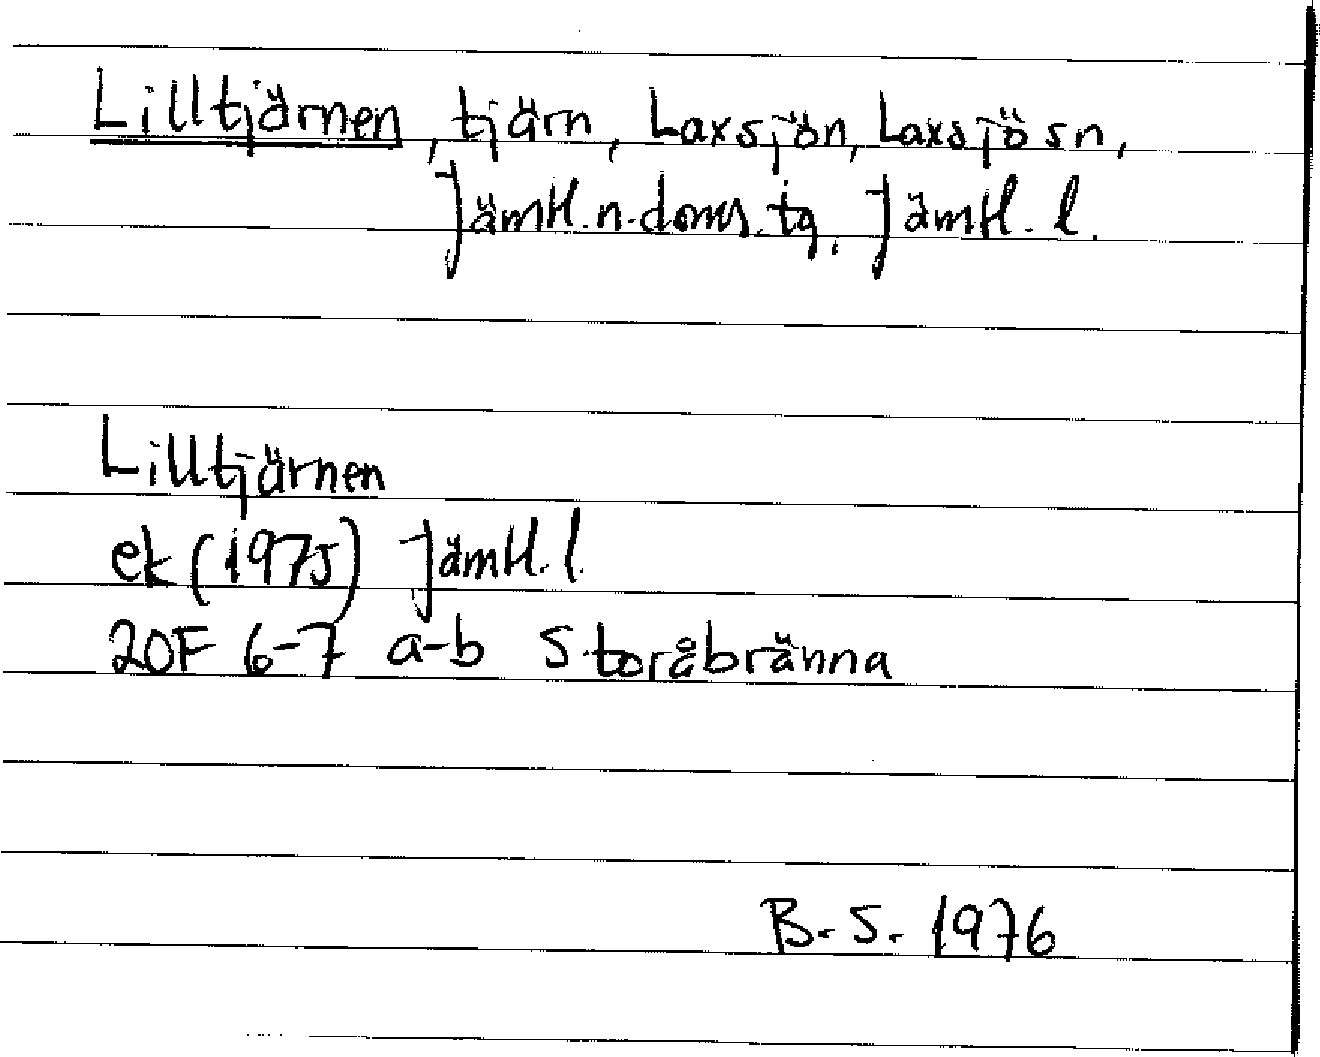 Lilltjärnen, tjärn, Laxsjön, Laxsjö sn,
Jämtl. n. doms. tg, Jämtl. l.
Lilltjärnen
ek (1975) Jämtl. l.
20F 6-7 a-b Storåbränna
B. S. 1976